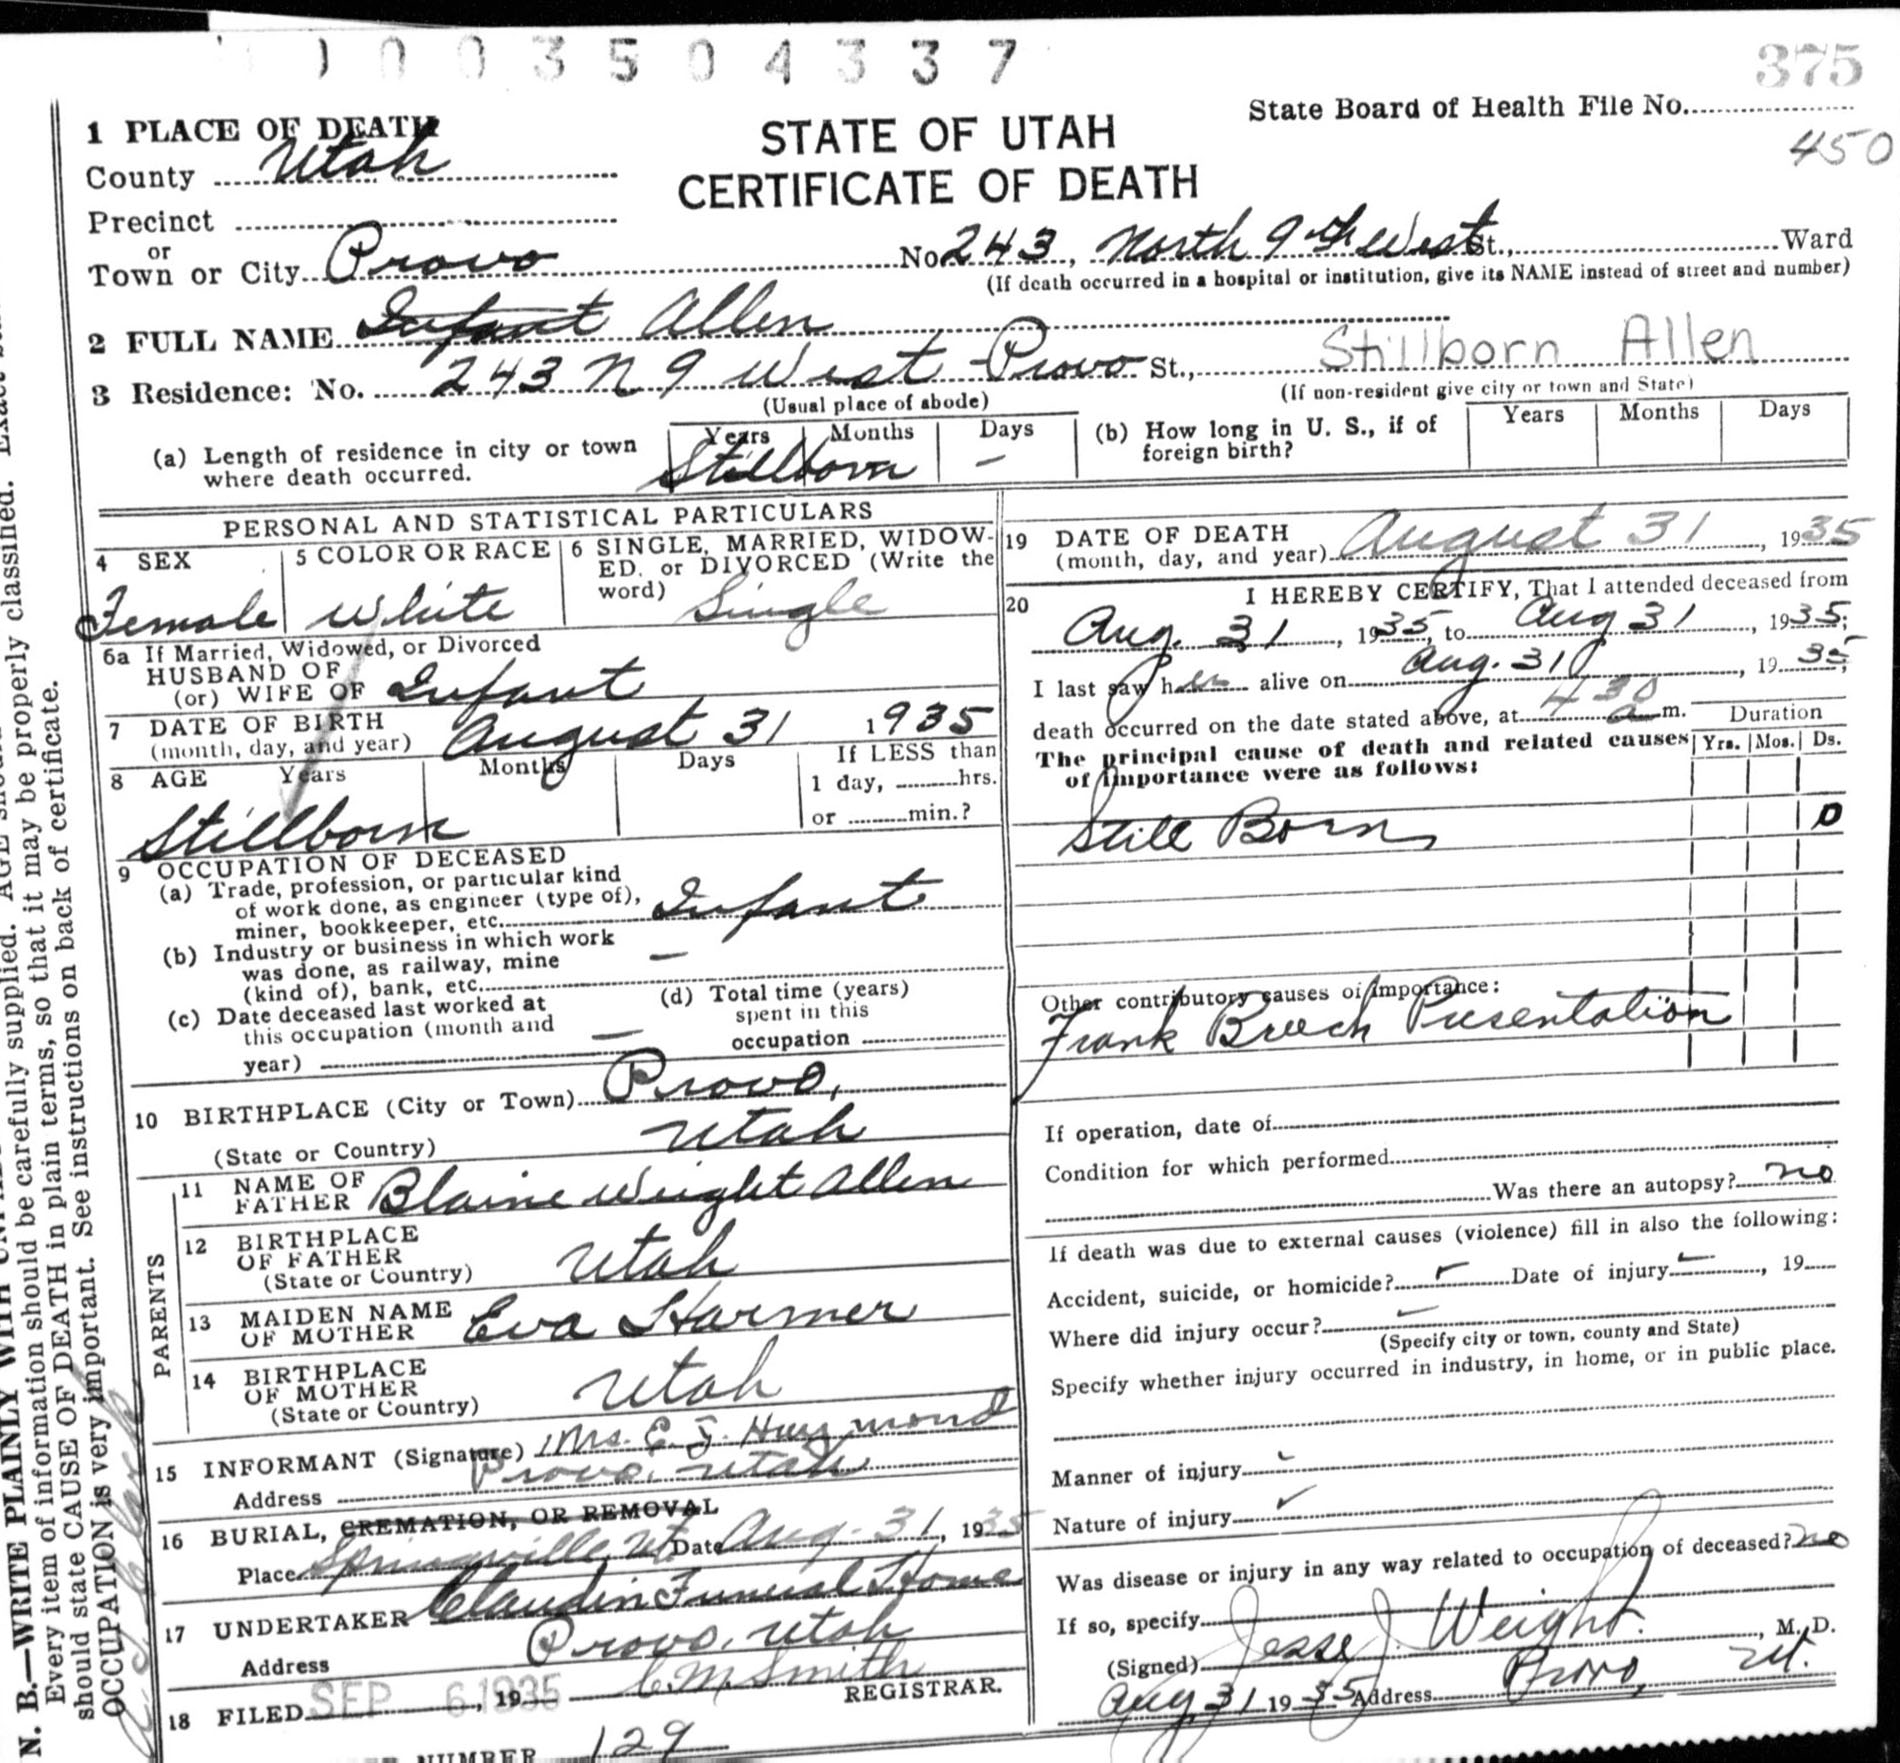 1003504337
375
State Board of Health File No.
450
1 PLACE OF DEATH
County Utah
STATE OF UTAH
CERTIFICATE OF DEATH
Precinct
or
Town or City Provo No. 243, North 9th West St., Ward
(If death occurred in a hospital or institution, give its NAME instead of street and number)
2 FULL NAME Infant Allen
Stillborn Allen
3 Residence: No. 243 N 9 West Provo St.,
(Usual place of abode)
(If non-resident give city or town and State)
(a) Length of residence in city or town where death occurred.
Years Months Days
Stillborn -
(b) How long in U. S., if of foreign birth?
Years Months Days
PERSONAL AND STATISTICAL PARTICULARS
4 SEX
Female
5 COLOR OR RACE
White
6 SINGLE, MARRIED, WIDOW-
ED, or DIVORCED (Write the
word) Single
6a If Married, Widowed, or Divorced
HUSBAND OF
(or) WIFE OF Infant
7 DATE OF BIRTH
(month, day, and year) August 31 1935
8 AGE Years Months Days If LESS than
1 day, hrs.
or min.?
Stillborn
9 OCCUPATION OF DECEASED
(a) Trade, profession, or particular kind
of work done, as engineer (type of),
miner, bookkeeper, etc. Infant
(b) Industry or business in which work
was done, as railway, mine
(kind of), bank, etc. -
(c) Date deceased last worked at
this occupation (month and
year) -
(d) Total time (years)
spent in this
occupation
10 BIRTHPLACE (City or Town) Provo,
(State or Country) Utah
PARENTS
11 NAME OF
FATHER Blaine Weight Allen
12 BIRTHPLACE
OF FATHER
(State or Country) Utah
13 MAIDEN NAME
OF MOTHER Eva Harmer
14 BIRTHPLACE
OF MOTHER
(State or Country) Utah
15 INFORMANT (Signature) Mrs. E. J. Haymond
Address Provo, Utah
16 BURIAL, CREMATION, OR REMOVAL
Place Springville, Ut. Date Aug. 31, 1935
17 UNDERTAKER Claudin Funeral Home
Address Provo, Utah
18 FILED SEP 6 1935, 19 C. M. Smith
REGISTRAR.
NUMBER 129
19 DATE OF DEATH
(month, day, and year) August 31, 1935
20 I HEREBY CERTIFY, That I attended deceased from
Aug. 31, 1935, to Aug 31, 1935;
I last saw her alive on Aug. 31, 1935;
death occurred on the date stated above, at 430 a m.
The principal cause of death and related causes
of importance were as follows:
Duration
Yrs. Mos. Ds.
Still Born 0
Other contributory causes of importance:
Frank Breech Presentation
If operation, date of
Condition for which performed
Was there an autopsy? no
If death was due to external causes (violence) fill in also the following:
Accident, suicide, or homicide? Date of injury, 19
Where did injury occur?
(Specify city or town, county and State)
Specify whether injury occurred in industry, in home, or in public place.
Manner of injury
Nature of injury
Was disease or injury in any way related to occupation of deceased? no
If so, specify
(Signed) Jesse J. Weight, M. D.
Aug 31 1935 Address Provo, Ut.
N. B.—WRITE PLAINLY WITH
Every item of information should be carefully supplied. AGE
should state CAUSE OF DEATH in plain terms, so that it may be properly classified. Exact
OCCUPATION is very important. See instructions on back of certificate.